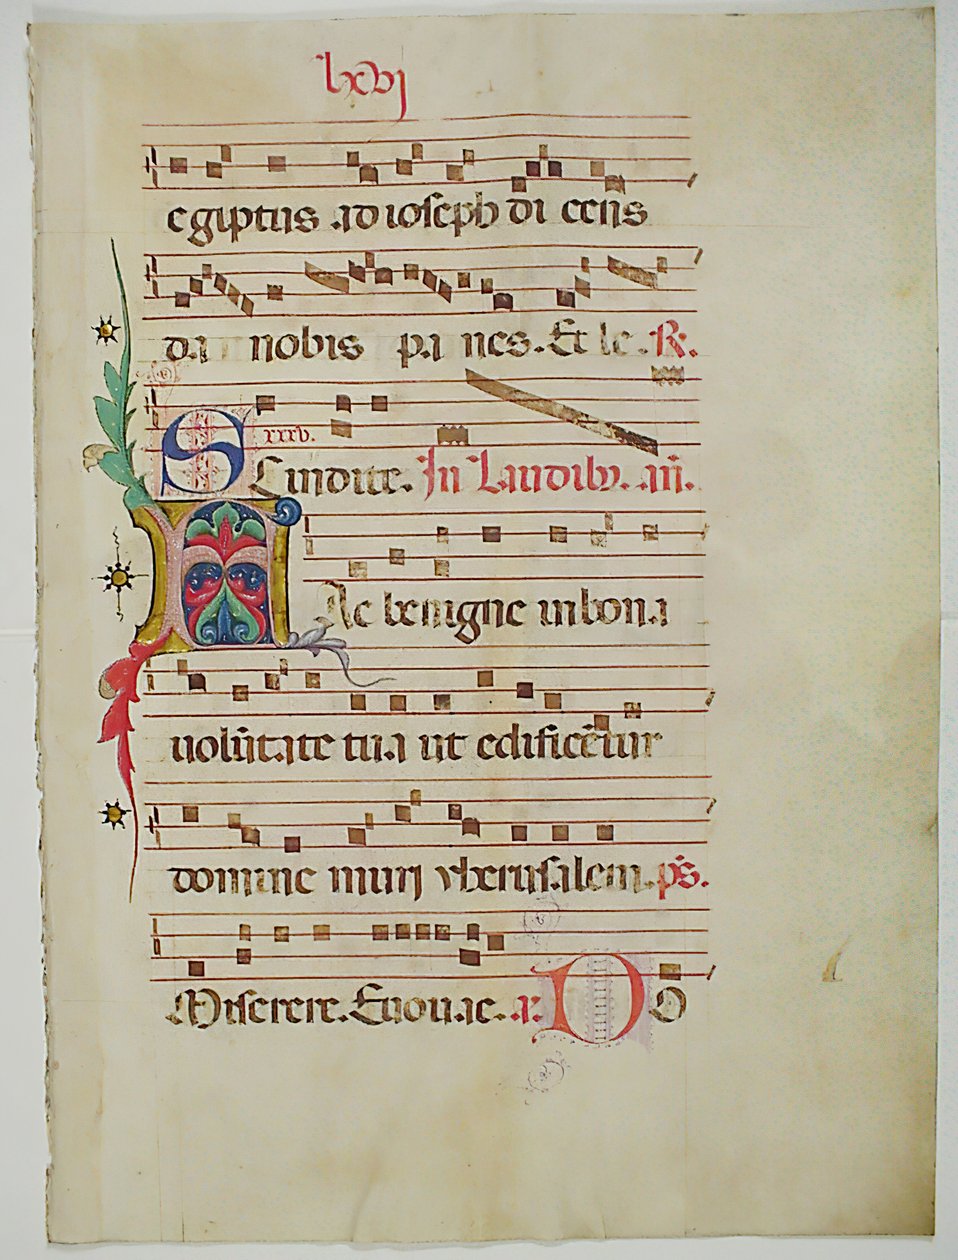 lxvj
egiptus ad ioseph di cens
da nobis pa nes. Et le. R.
xxxv.
Scindite. In Laudibȝ. añ.
Fac benigne in bona
uolūtate tua ut edificētur
domine muri yherusalem. ps̄.
Miserere. Euouae. a. DO